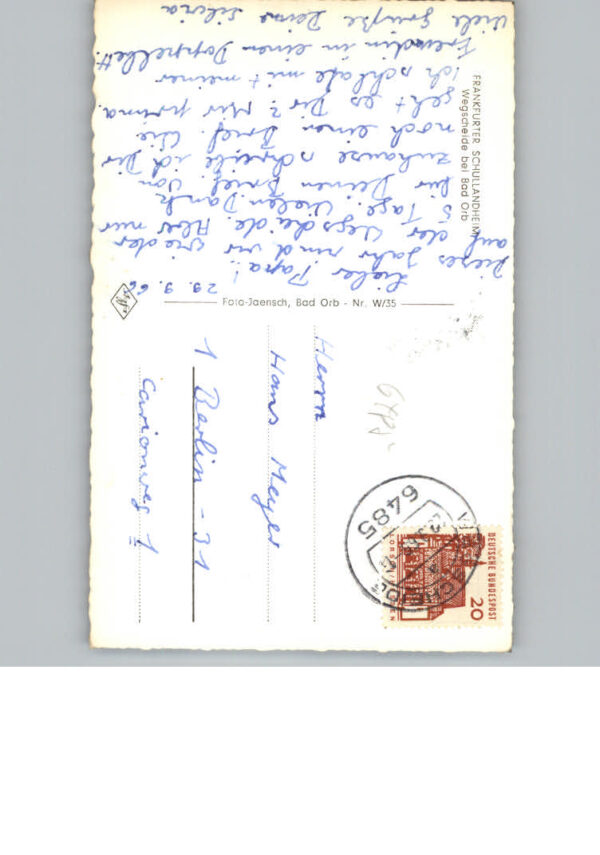 FRANKFURTER SCHULLANDHEIM
Wegscheide bei Bad Orb
29. 9. 66
Lieber Papa!
Dieses Jahr sind wir wieder
auf der Wegscheide. Aber nur
5 Tage. Vielen Dank
für Deinen Brief. Von
zuhause schreibe ich Dir
noch einen Brief. Wie
geht es Dir? Mir prima
Ich schlafe mit meiner
Freundin in einem Doppelbett.
Viele Grüße Deine Silvia
Foto-Jaensch, Bad Orb - Nr. W/35
Agfa
Herrn
Hans Meyer
1 Berlin - 31
Carionweg 1
6485
DEUTSCHE BUNDESPOST
20